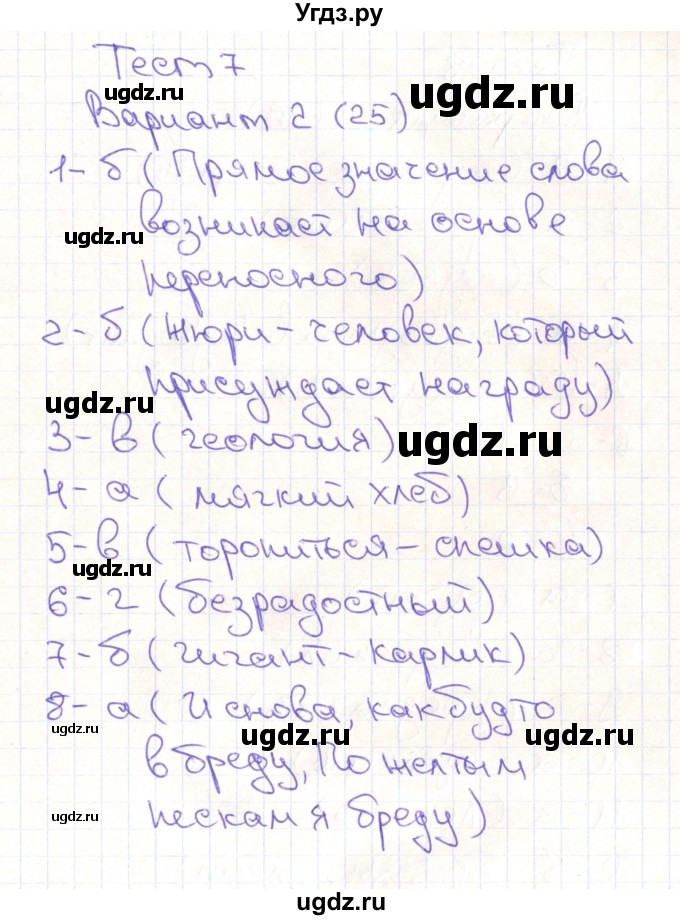 Угдз.ру
Тест 7
ugdz.ru
ugdz.ru
Вариант 2 (25)
1- б (Прямое значение слова
ugdz.ru
возникает на основе
переносного)
2- б (Жюри - человек, который
присуждает награду)
ugdz.ru
3- в (геология)
ugdz.ru
4- а (мягкий хлеб)
5- в (торопиться - спешка)
ugdz.ru
6- г (безрадостный)
7- б (гигант - карлик)
8- а (И снова, как будто
ugdz.ru
ugdz.ru
ugdz.ru
в бреду, По желтым
пескам я бреду)
ugdz.ru
ugdz.ru